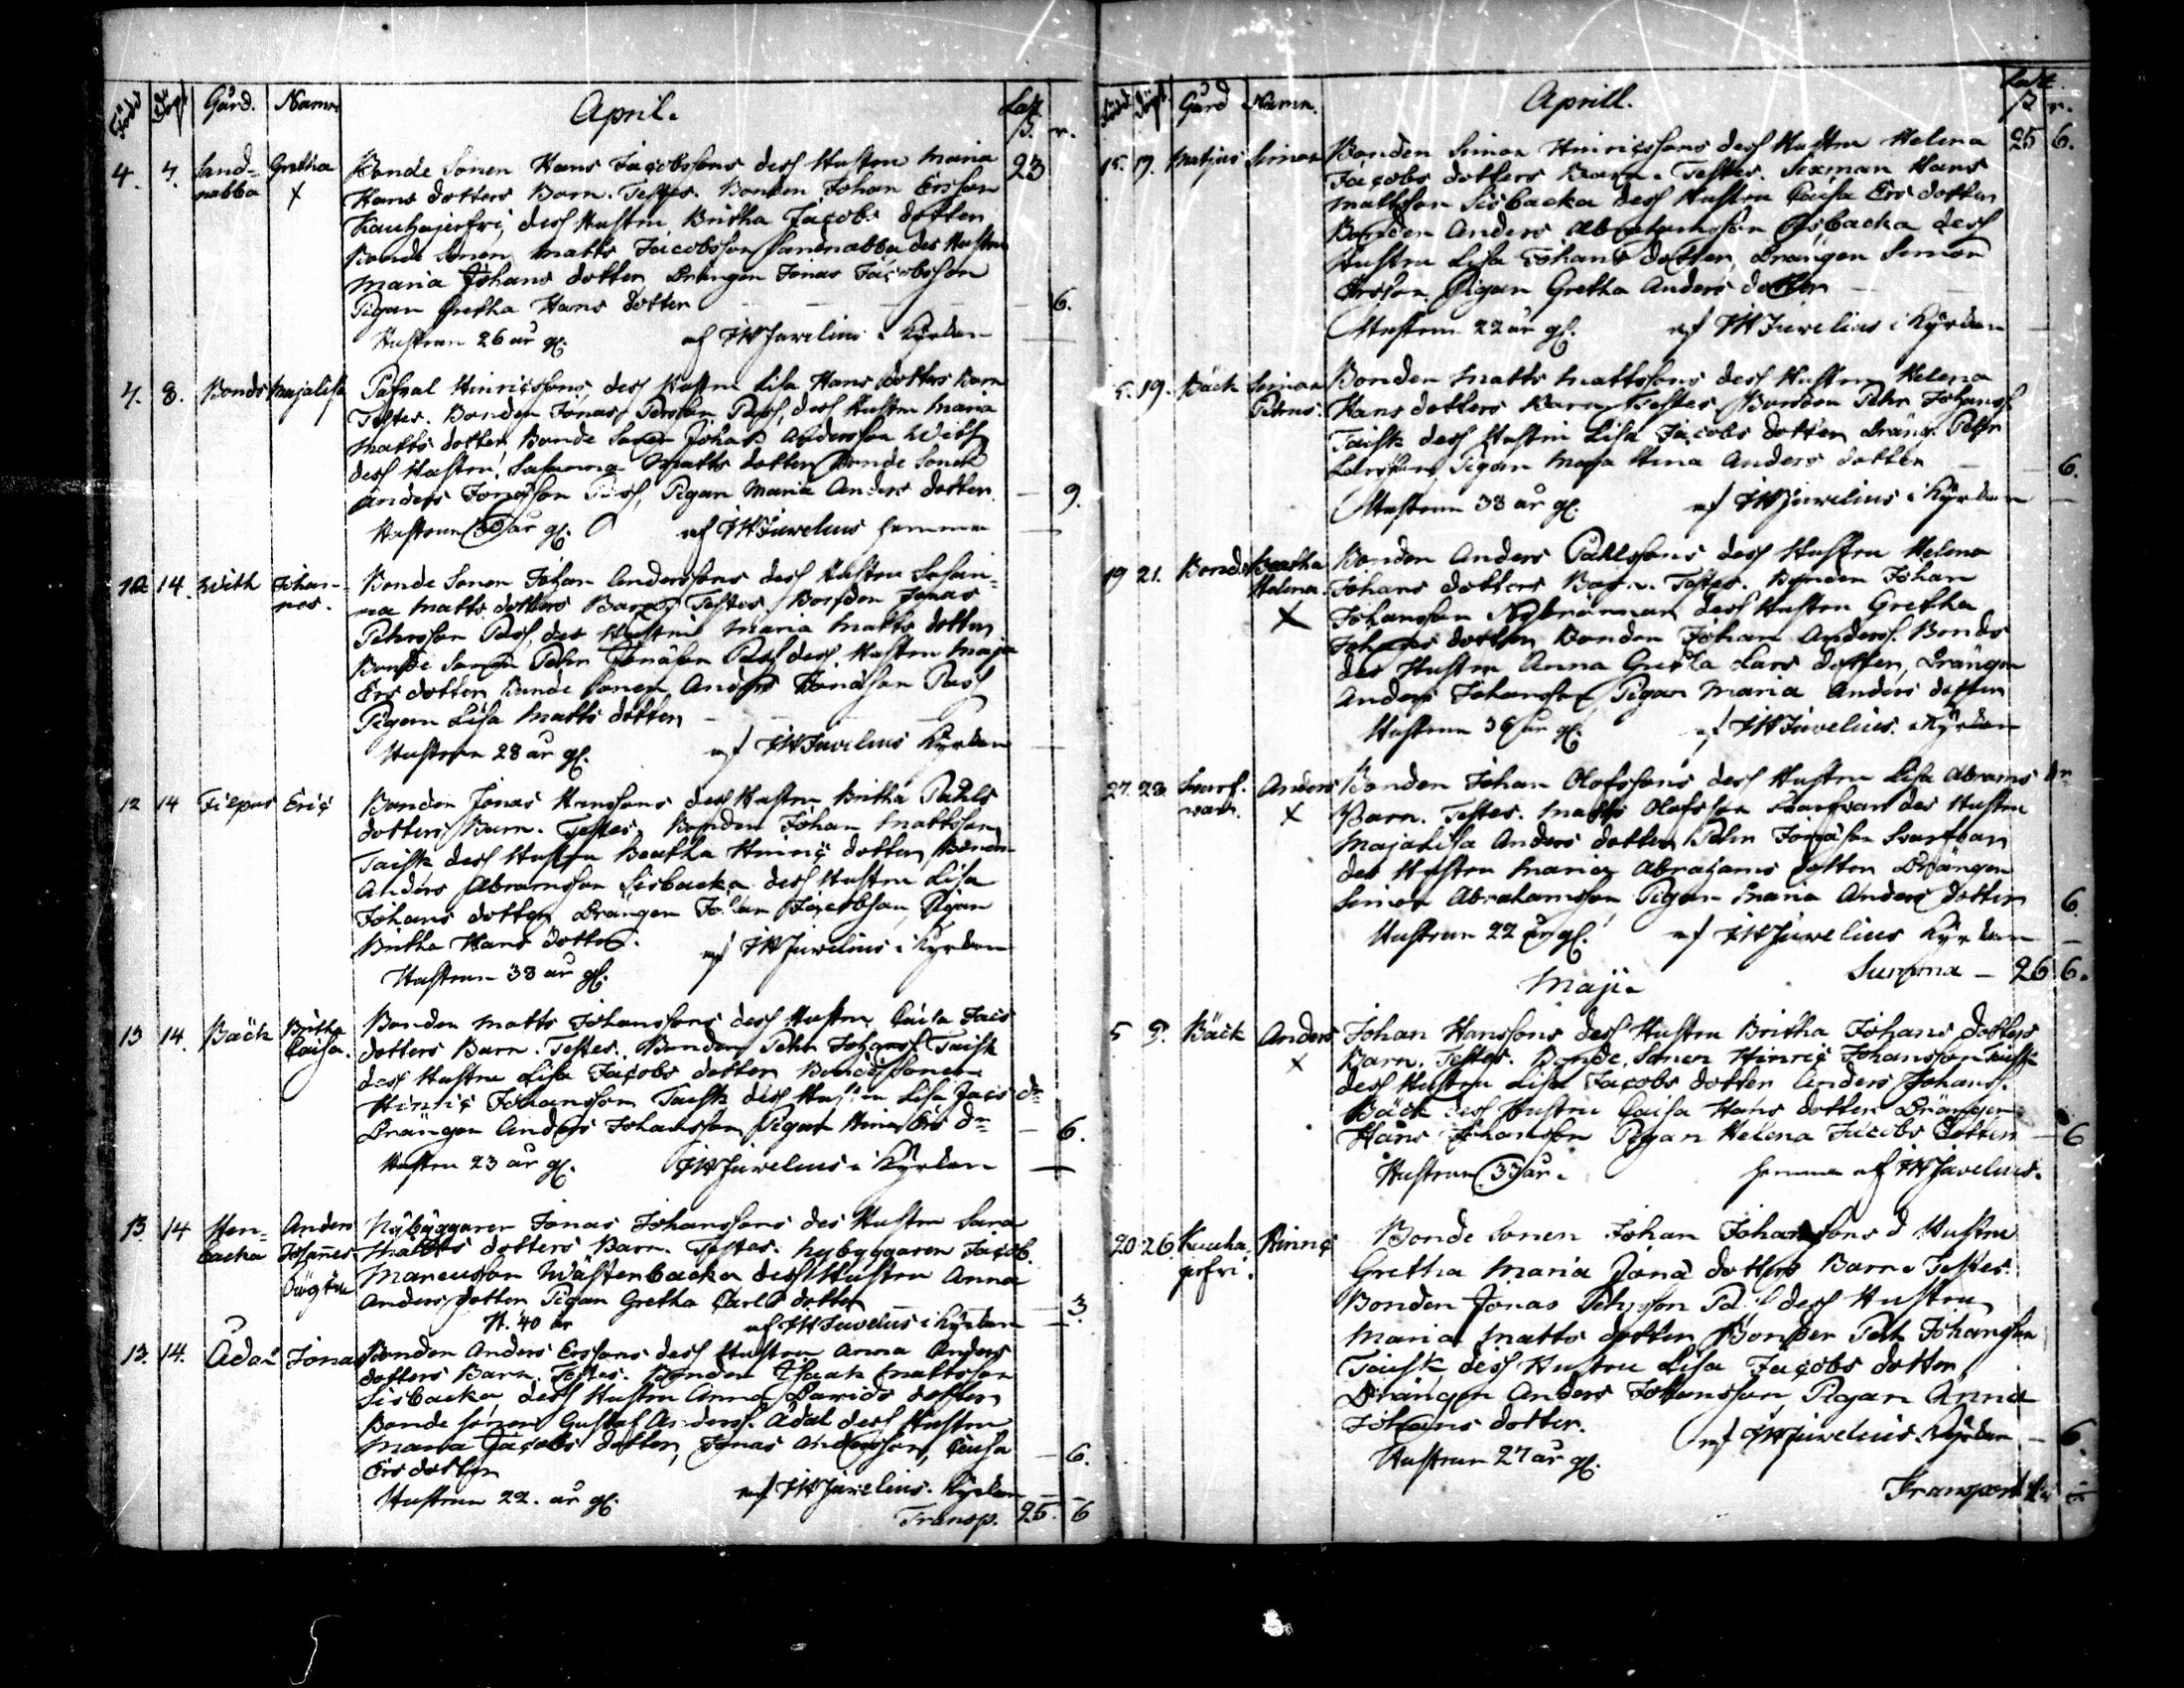 Född Döpt Gård. Namn April. Lått ß. r.
4. 7. Sand= Gretha Bonde Sonen Hans Jacobssons dess Hustru Maria 23
nabba x Hans dotters Barn. Testes. Bonden Johan Ersson
Kauhajerfvi, dess Hustru Britha Jacobs dotter
Bonde Sonen Matts Jacobsson Sandnabba des Hustru
Maria Johans dotter, Drängen Jonas Jacobsson
Pigan Gretha Hans dotter 6.
Hustrun 26 år gl. af JW Juvelius i Kyrkan
7. 8. Bonds Majalisa Hinricssons, dess Hustru Lisa Hans dotters Barn
Testes. Bonden Jonas Persson Pass, dess Hustru Maria
Matts dotter, Bonde Sonen Johan Andersson With
dess Hustru Susanna Matts dotter, Bonde Sonen
Anders Jonasson Pass, Pigan Maria Anders dotter. 9.
Hustrun 30 år gl. af JW Juvelius hemma
12 14. With Johan= Bonde Sonen Johan Anderssons dess Hustru Susan=
nes. na Matts dotters Barn, Testes, Bonden Jonas
Pehrsson Pass, des Hustru Maria Matts dotter
Bonde Sonen Pehr Jonasson Pass des Hustru Maja
Ers dotter, Bonde Sonen Anders Jonasson Pass
Pigan Lisa Matts dotter
Hustrun 28 år gl. af JW Juvelius Kyrkan
12 14 Filpus Eric Bonden Jonas Hanssons dess Hustru Britha Påhls
dotters Barn. Testes, Bonden Johan Mattsson
Taisk dess Hustru Beatha Hinric dotter, Bonden
Anders Abramsson Sisbacka dess Hustru Lisa
Johans dotter, Drängen Johan Jacobsson, Pigan
Britha Hans dotter. af JW Juvelius i Kyrkan
Hustrun 38 år gl.
13 14. Bäck Britha Bonden Matts Johanssons dess Hustru Caisa Jacs
Caisa. dotters Barn. Testes. Bonden Pehr Johanss. Taisk
dess Hustru Lisa Jacobs dotter Bonde Sonen
Hinric Johansson Taisk dess Hustru Lisa Jacs dr
Drängen Anders Johansson, Pigan Ers dr 6.
Hustru 23 år gl. JW Juvelius i Kyrkan
13 14 Anders Nybyggaren Jonas Johanssons des Hustru Sara
backa Johannes Matts dotters Barn. Testes. Nybyggaren Jacob
Marcusson Wästerbacka dess Hustru Anna
Anders dotter Pigan Gretha Carls dotter 3.
H. 40 år af JW Juvelius i Kyrkan
13. 14. Ådal Jonas Bonden Anders Erssons dess Hustru Anna Anders
dotters Barn. Testes. Bonden Isaak Mattsson
Sisbacka dess Hustru Anna Davids dotter
Bonde Sonen Gustaf Anderss. Ådal dess Hustru
Maria Jacobs dotter, Jonas Andersson, Caisa 6.
Ers dotter
Hustrun 22. år gl. af JW Juvelius. Kyrkan
Transp. 25. 6
Född Döpt Gård Namn. Aprill. Lått ß r.
15. 17. Matjus Simon Bonden Simon Hinricssons dess Hustru Helena 25 6.
Jacobs dotters Barn. Testes. Sexman Hans
Mattsson Sisbacka dess Hustru Caisa Ers dotter
Bonden Anders Abrahamsson Sisbacka dess
Hustru Lisa Johans dotter, Drängen Simon
Ersson. Pigan Gretha Anders dotter
Hustrun 22 år gl. af JW Juvelius i Kyrkan
19. Bäck Simon Bonden Matts Mattssons dess Hustru Helena
Petrus. Hans dotters Barn Testes Bonden Pehr Johanss.
Taisk dess Hustru Lisa Jacobs dotter, Dräng. Pehr
Pigan Maja Stina Anders dotter 6.
Hustrun 38 år gl. af JW Juvelius i Kyrkan
19 21. Bonds Beatha Bonden Anders Påhlssons dess Hustru Helena
Helena. Johans dotters Barn. Testes. Bonden Johan
x Johansson dess Hustru Gretha
dotter, Bonden Johan Anderss. Bonds
des Hustru Anna Greta Lars dotter, Drängen
Anders Johansson, Pigan Maria Anders dotter
Hustrun 36 år gl. af JW Juvelius. i Kyrkan
27. 28. Svarf= Anders Bonden Johan Olofssons dess Hustru Lisa Abrams dr
var. x Barn. Testes. Matts Olofsson Svarfvar des Hustru
Majalisa Anders dotter Pehr Jonasson Svarfvar
des Hustru Maria Abrahams dotter Drängen
Simon Abrahamsson Pigan Maria Anders dotter 6.
Hustrun 22 år gl. af JW Juvelius Kyrkan
Maji. Summa — 26 6.
5 9. Bäck Anders Johan Hanssons dess Hustru Britha Johans dotters
x Barn. Testes. Bonde Sonen Hinric Johansson Taisk
dess Hustru Lisa Jacobs dotter Anders Johanss.
Bäck dess Hustru Caisa Hans dotter Drängen
Hans Johansson Pigan Helena Jacobs dotter 6
Hustrun 33 år. hemma af JW Juvelius.
20 26. Kauha Hinric Bonde Sonen Johan Johanssons d Hustru
jerfvi. Gretha Maria Jona dotters Barn. Testes.
Bonden Jonas Pehrsson Pass dess Hustru
Maria Matts dotter, Bonden Pehr Johansson
Taisk dess Hustru Lisa Jacobs dotter
Drängen Anders Johansson, Pigan Anna
Johans dotter. af JW Juvelius. Kyrkan 6.
Hustrun 27 år gl.
Transport